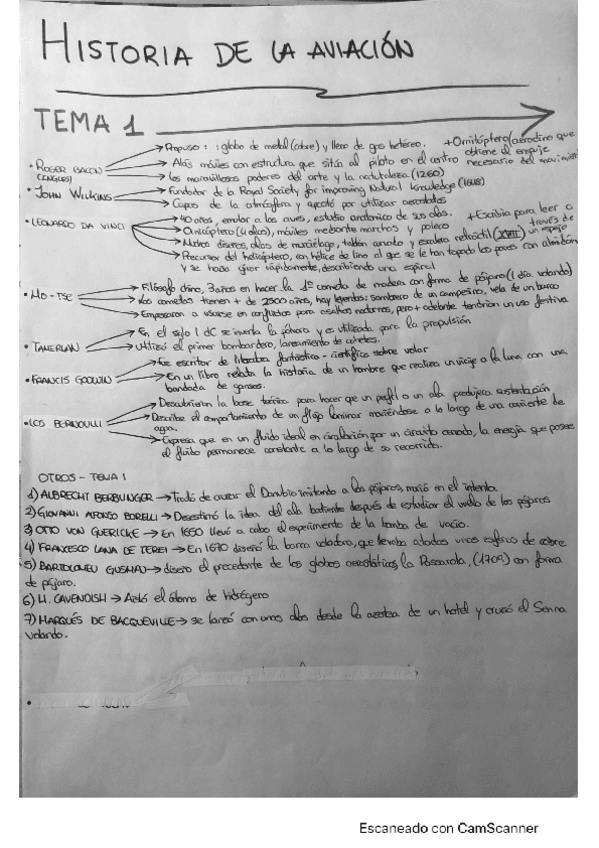 HISTORIA DE LA AVIACIÓN
TEMA 1
• ROGER BACON (INGLES)
→ Propuso : globo de metal (cobre) y lleno de gas hetéreo. + Ornitóptero (aerodino que obtiene el empuje necesario del movimien
→ Alas móviles con estructura que sitúa al piloto en el centro
→ Los maravillosos poderes del arte y la naturaleza (1260)
• JOHN WILKINS
→ Fundador de la Royal Society for improving Natural Knowledge
→ Capas de la atmósfera y apostó por utilizar aerostatos
• LEONARDO DA VINCI
→ 40 años, emular a las aves, estudio anatómico de sus alas. + Escribía para leer a través de un espejo
→ Ornicóptero (4 alas), móviles mediante manchos y poleas
→ diseños, alas de murciélago, tablón anudo y escalera retráctil (XVIII)
→ Precursor del helicóptero, con hélice de lino al que se le han tapado los poros con almidón
y se hacía girar rápidamente, describiendo una espiral
• MO-TSE
→ Filósofo chino, 3 años en hacer la 1º cometa de madera con forma de pájaro (1 día volando)
→ Las cometas tienen + de 2500 años, hay leyendas: sombrero de un campesino, vela de un barco
→ Empezaron a usarse en conflictos para asaltos nocturnos, pero + adelante tendrían un uso festivo
• TAMERLAN
→ En el siglo I dC se inventa la pólvora y es utilizada para la propulsión
→ Utilizó el primer bombardero, lanzamiento de cohetes.
• FRANCIS GODWIN
→ Fue escritor de literatura fantástica - científica sobre volar
→ En un libro relata la historia de un hombre que realiza un viaje a la luna con una
bandada de gansos.
• LOS BERNOULLI
→ Descubrieron la base teórica para hacer que un perfil o un ala produjera sustentación
→ Describe el comportamiento de un flujo laminar moviéndose a lo largo de una corriente de
agua.
→ Expresa que en un fluido ideal en circulación por un circuito cerrado, la energía que posee
el fluido permanece constante a lo largo de su recorrido.
OTROS - TEMA 1
1) ALBRECHT BERBLINGER → Trató de cruzar el Danubio imitando a los pájaros, murió en el intento.
2) GIOVANNI AFONSO BORELLI → Desestimó la idea del ala batiente después de estudiar el vuelo de los pájaros
3) OTTO VON GUERICKE → En 1650 llevó a cabo el experimento de la bomba de vacío.
4) FRANCESCO LANA DE TERZI → En 1670 diseñó la barca voladora, que llevaba atadas unas esferas de cobre
5) BARTOLOMEU GUSMAO → diseño el precedente de los globos aerostáticos, la Passarola, (1709) con forma
de pájaro.
6) H. CAVENDISH → Aisló el átomo de hidrógeno
7) MARQUÉS DE BACQUEVILLE → se lanzó con unas alas desde la azotea de un hotel y cruzó el Senna
volando.
Escaneado con CamScanner